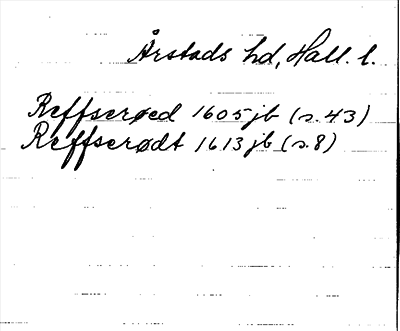 Årstads hd, Hall. l.
Reffserøed 1605 jb (s. 43)
Reffserødt 1613 jb (s. 8)